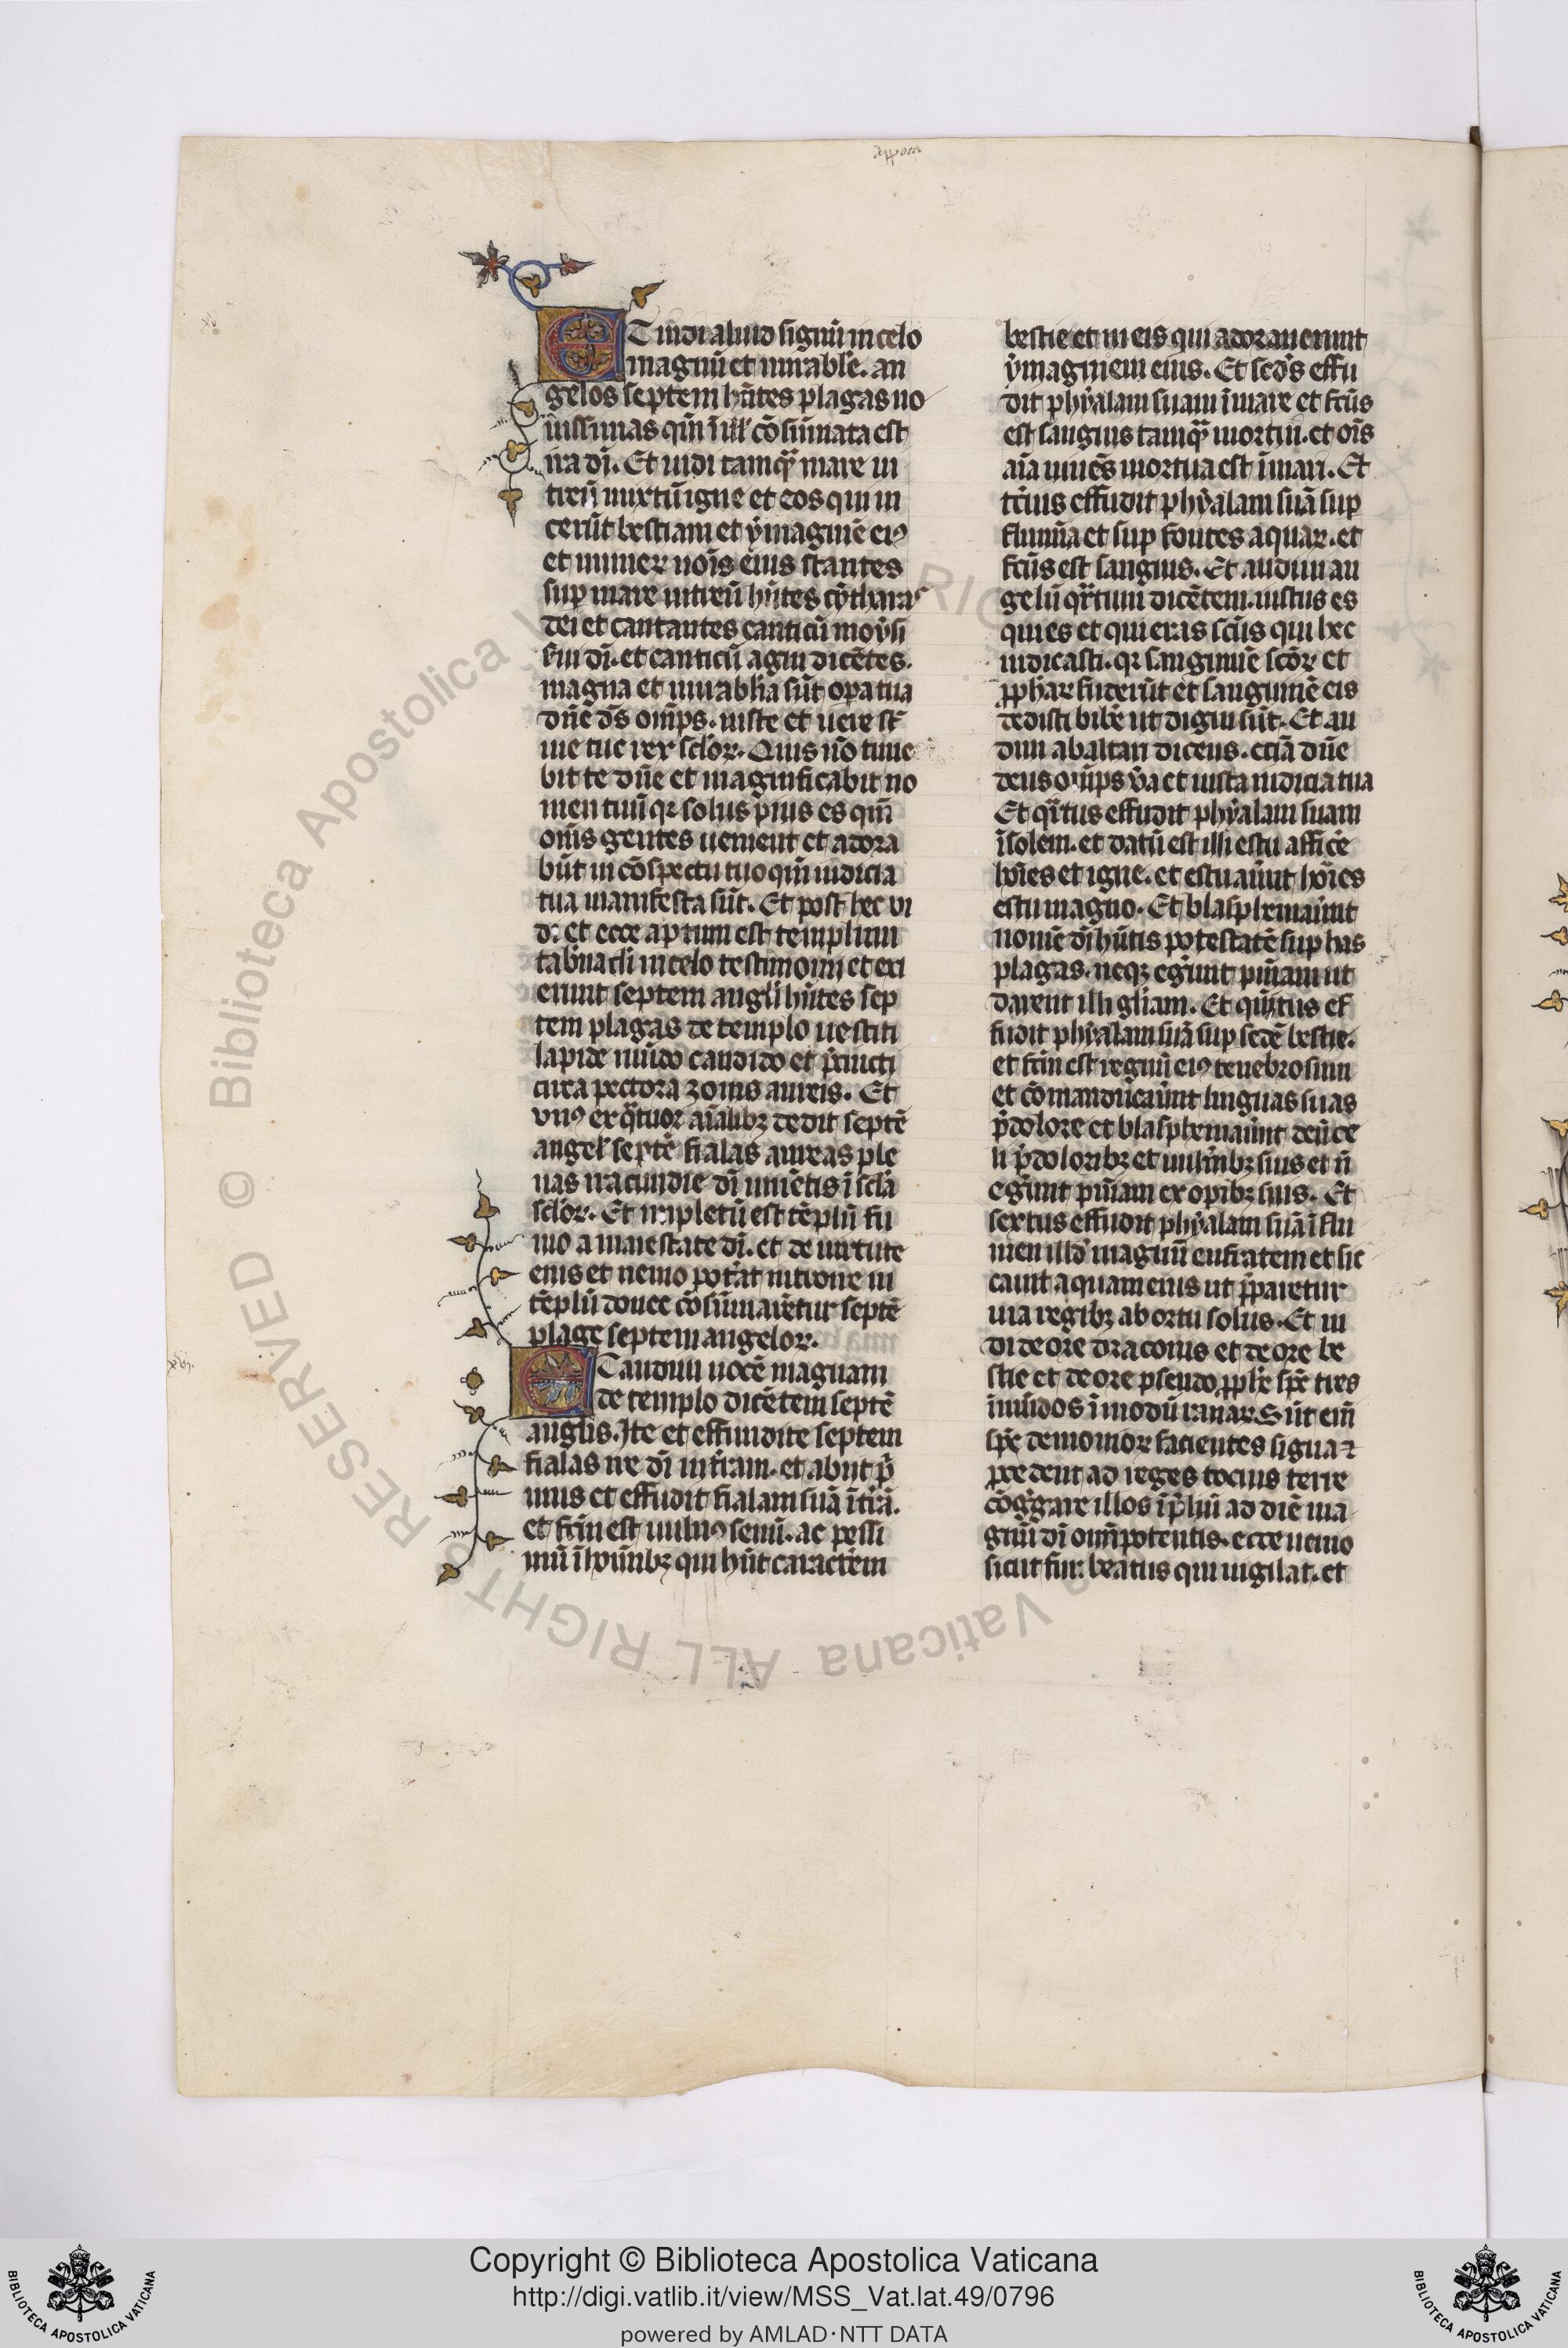 appoca
xv
ET uidi aliud signū in celo
magnū et mirabl̓e. an
gelos septem hn̄tes plagas no
uissimas qm̄ ī ill̓ cōsūmata est
ira dī. Et uidi tamqᷓ mare ui
treū mixtū igne et eos qui ui
cerūt bestiam et ẏmaginē eiꝰ
et numeꝝ noīs eius stantes
suꝑ mare uitreū hn̄tes cẏtharas
dei et cantantes canticū moẏsi
s̓ui dī. et canticū agni dicētes.
magna et mirabl̓ia sūt oꝑa tua
dn̄e ds̄ om̄ps. iuste et uere st̄
uie tue rex scl̓oꝝ. Quis nō time
bit te dn̄e et magnificabit no
men tuū qꝛ solus pius es qm̄
om̄s gentes uenient et adora
būt in cōspectu tuo qm̄ iudicia
tua manifesta sūt. Et post hec ui
di et ecce aptum est templum
tab̓nacl̓i in celo testimonii et exi
erunt septem angl̓i hn̄tes sep
tem plagas de templo uestiti
lapide mūdo candido et p̄cincti
circa pectora zonis aureis. Et
vnꝰ ex qᷓtuor aīalibꝫ dedit septē
angel̓ septē fialas aureas ple
nas iracundie dī uiuētis ī scl̓a
scl̓oꝝ. Et impletū est tēplū fu
mo a maiestate dī. et de uirtute
eius et nemo pot̓at introire in
tēplū donec cōsūmarētur septē
plage septem angeloꝝ.
xvi.
ET audiui uocē magnam
de templo dicētem septē
angl̓is. Ite et effundite septem
fialas ire dī in t̓ram. et abiit p̓
mus et effudit fialam suā ī t̓rā.
et fcm̄ est uulnꝰ seuū. ac pessi
mū ī hoīnibꝫ qui hn̄t caract̓em
bestie et in eis qui adorauerunt
ẏmaginem eius. Et scd̓s effu
dit phẏalam suam ī mare et fcūs
est sanguis tamqᷓ mortui. et oīs
aīa uiuēs mortua est ī mari. Et
tc̓ius effudit phẏalam suā suꝑ
flumīa et suꝑ fontes aquaꝝ. et
fcūs est sanguis. Et audiui an
gelū qᷓrtum dicētem. iustus es
qui es et qui eras scūs qui hec
iudicasti. qꝛ sanguinē scōꝝ et
ꝓph̓aꝝ fuderūt et sanguinē eis
dedisti bib̓e ut digni sūt. Et au
diui ab altari dicens. eciā dn̄e
deus om̄ps u̓a et iusta iudicia tua
Et qᷓrtus effudit phẏalam suam
ī solem. et datū est illi estu affic̓e
hoīes et igne. et estuau̓unt hoīes
estu magno. Et blasphemau̓unt
nomē dī hn̄tis potestatē suꝑ has
plagas. neqꝫ eg̓unt pn̄iam ut
darent illi gl̓iam. Et quītus ef
fudit phẏalam suā suꝑ sedē bestie.
et fcm̄ est regnū eiꝰ tenebrosum
et cōmanducau̓unt linguas suas
p̓ dolore et blasphemau̓unt deū ce
li p̓ doloribꝫ et uuln̓ibꝫ suis et n̄
eg̓unt pn̄iam ex opibꝫ suis. Et
sextus effudit phẏalam suā ī flu
men illd̓ magnū eufratem et sic
cauit aquam eius ut p̄pararetur
uia regibꝫ ab ortu solis. Et ui
di de ore draconis et de ore be
stie et de ore pseudo ꝓph̓e sp̄c tres
īmūdos ī modū ranaꝝ. Sūt em̄
sp̄c demonioꝝ facientes signa ⁊
ꝓcedent ad reges tocius terre
cōg̓gare illos ī p̓liū ad diē ma
gnū dī om̄ipotentis. ecce uenio
sicut fur. beatus qui uigilat. et
© Biblioteca Apostolica Vaticana ALL RIGHTS RESERVED
BIBLIOTECA APOSTOLICA VATICANA
Copyright © Biblioteca Apostolica Vaticana
http://digi.vatlib.it/view/MSS_Vat.lat.49/0796
powered by AMLAD·NTT DATA
BIBLIOTECA APOSTOLICA VATICANA